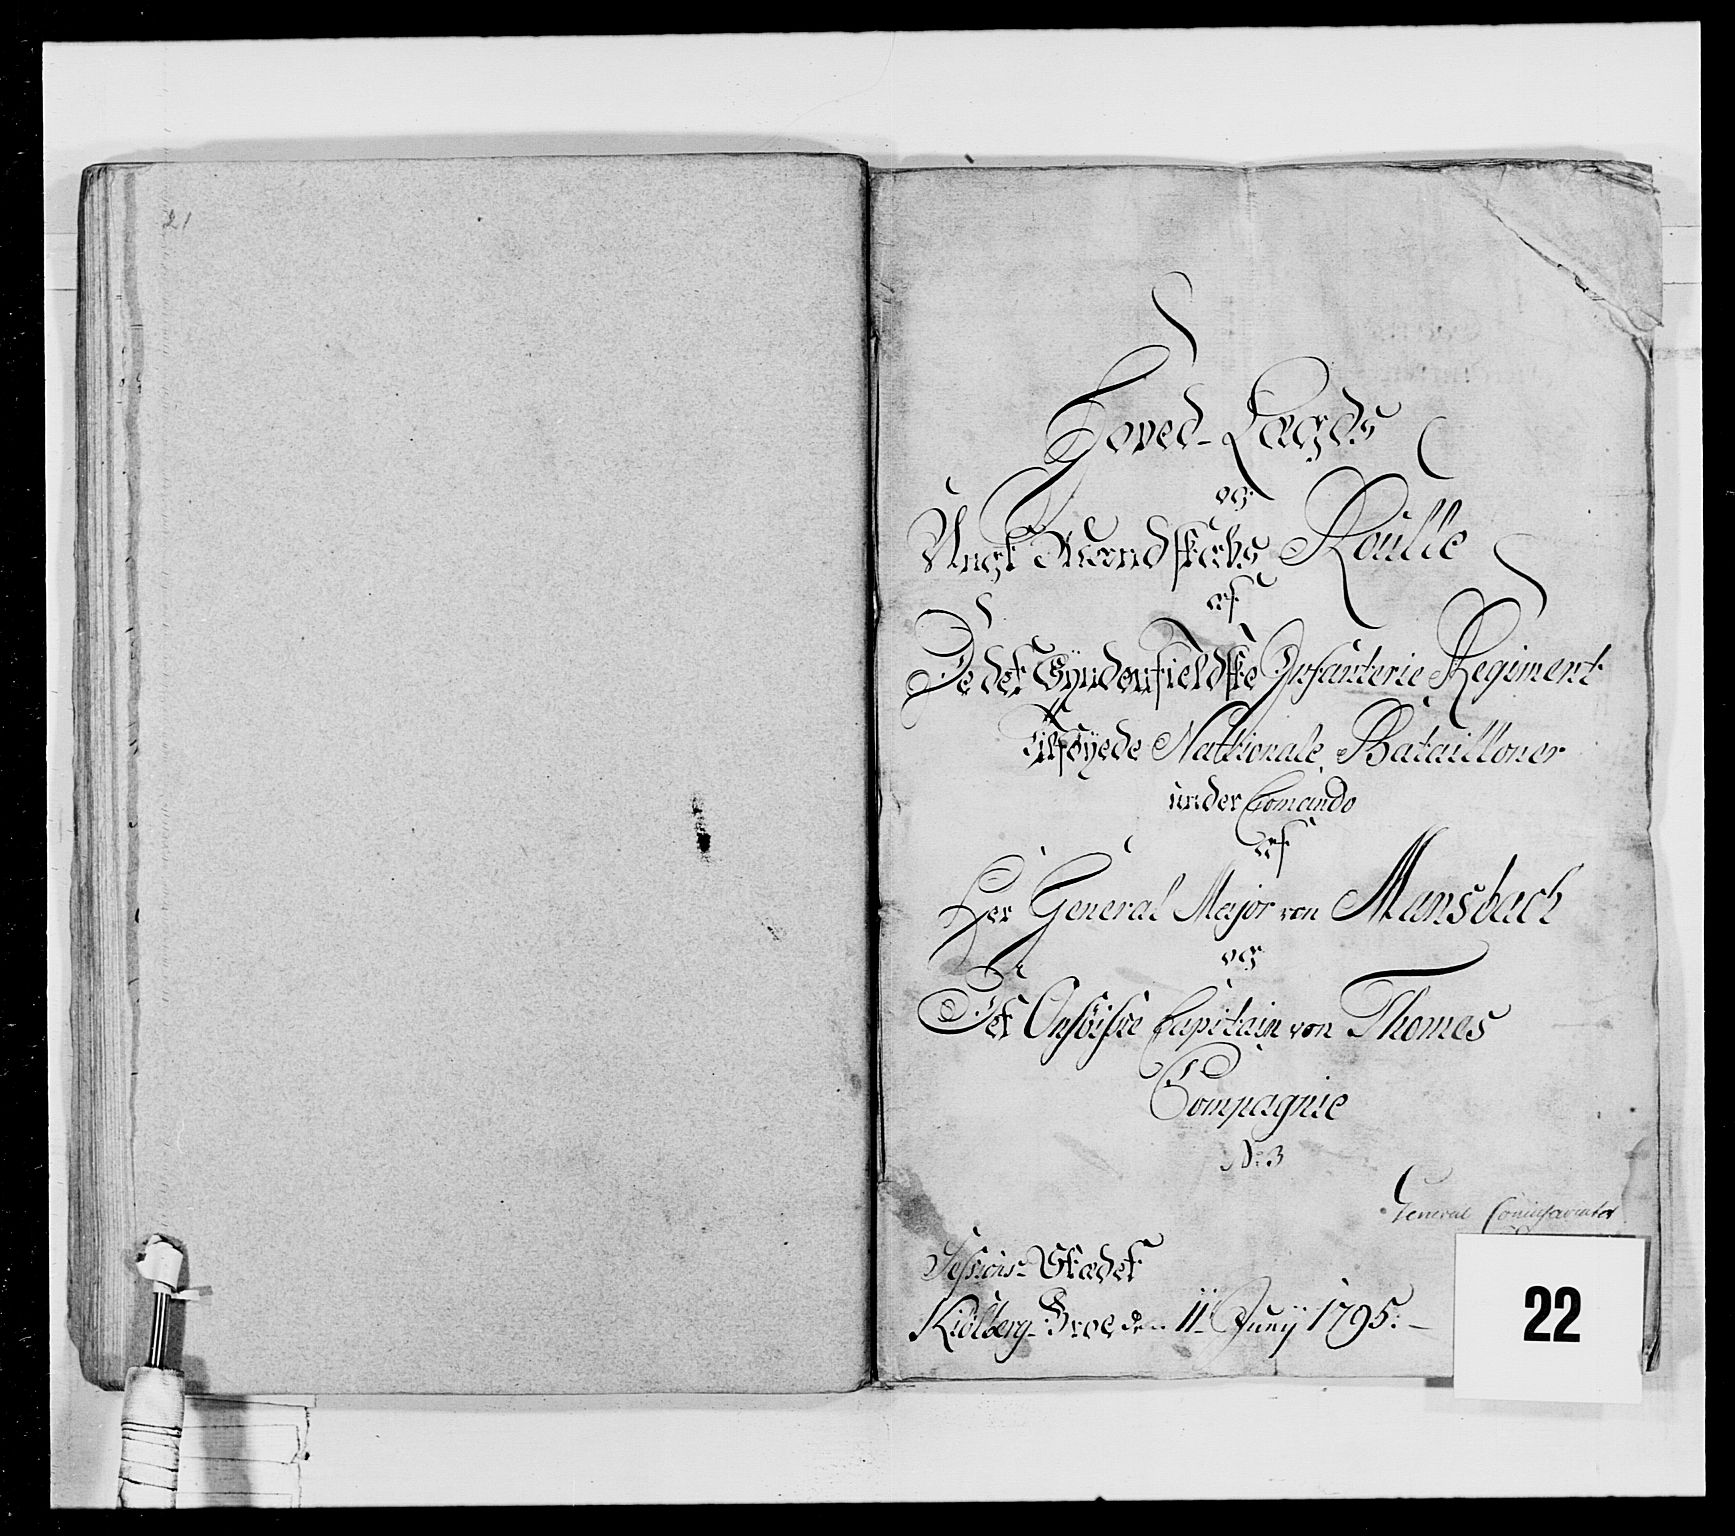 21
Hoved-Lægds
og
Ungt Mandskabs Roulle
af
De det Syndenfieldske Infanterie Regiment
tilføyede Nattionale Batailloner
under Comando
af
Her General Major von Mansbach
og
Det Onsöiske Capitain von Thomes
Compagnie
No 3
General Comissariatet
Sessions-Stædet
Kiölberg-Broe den 11te Junij 1795.
22